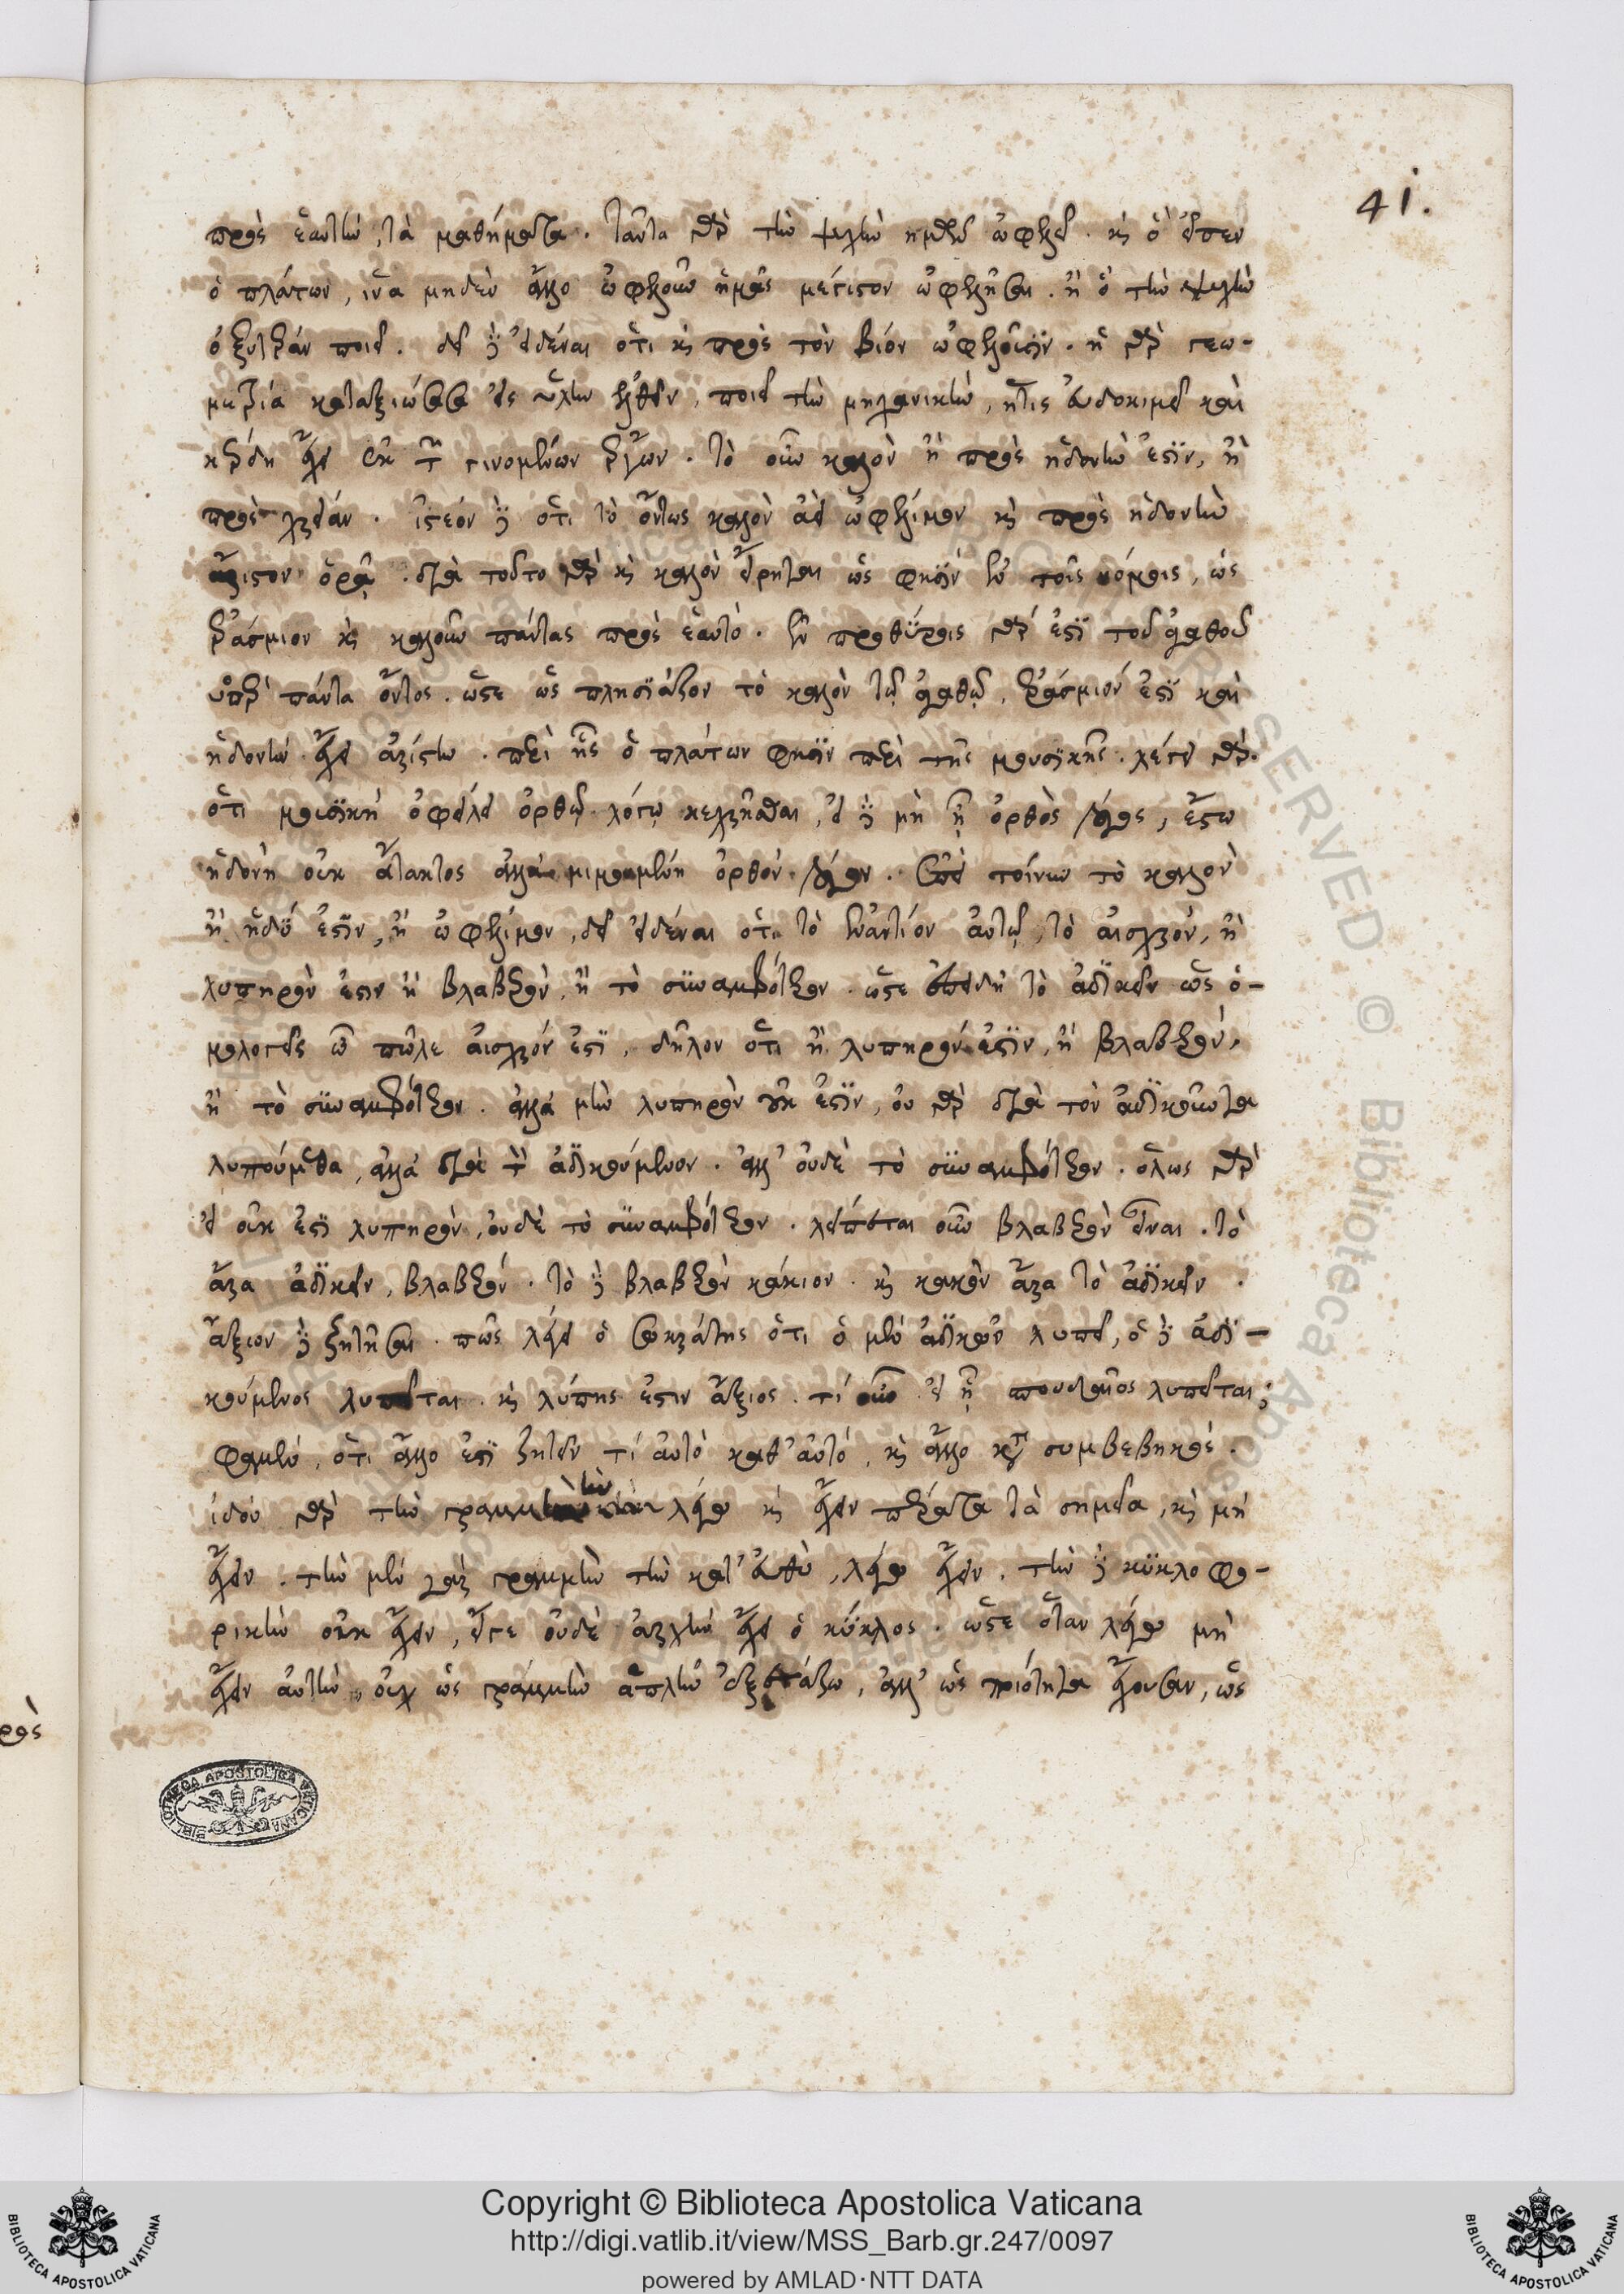 41.
πρὸς ἑαυτὴν, τὰ μαθήματα. ταῦτα γὰρ τὴν ψυχὴν ἡμῶν ὠφελεῖ. καὶ ὃ εἶπεν
ὁ πλάτων, ἵνα μηδὲν ἄλλο ὠφελοῦν ἡμᾶς μέγιστον ὠφελήσῃ. ἢ ὃ τὴν ψυχὴν
ὀξυτέραν ποιεῖ. δεῖ δὲ εἰδέναι ὅτι καὶ πρὸς τὸν βίον ὠφελοῦσιν. ἡ γὰρ γεω-
μετρία καταξιώσασα εἰς ὕλην ἐλθεῖν, ποιεῖ τὴν μηχανικὴν, ἥτις εὐδοκιμεῖ καὶ
κέρδη ἔχει ἐκ τῶν γινομένων ἔργων. τὸ οὖν καλὸν ἢ πρὸς ἡδονὴν ἐστὶν, ἢ
πρὸς χρείαν. ἰστέον δὲ ὅτι τὸ ὄντως καλὸν ἀεὶ ὠφέλιμον καὶ πρὸς ἡδονὴν
ἄριστον ὁρᾷ. διὰ τοῦτο γὰρ καὶ καλὸν εἴρηται ὥς φησὶν ἐν τοῖς νόμοις, ὡς
ἐράσμιον καὶ καλοῦν πάντας πρὸς ἑαυτό. ἐν προθύροις γάρ ἐστι τοῦ ἀγαθοῦ
ὑπὲρ πάντα ὄντος. ὥστε ὡς πλησιάζον τὸ καλὸν τῷ ἀγαθῷ, ἐράσμιόν ἐστι καὶ
ἡδονὴν ἔχει ἀρίστην. περὶ ἧς ὁ πλάτων φησὶν περὶ τῆς μουσικῆς. λέγει γὰρ
ὅτι μουσικὴ ὀφείλει ὀρθῷ λόγῳ κεχρῆσθαι, εἰ δὲ μὴ ᾖ ὀρθὸς λόγος, ἔστω
ἡδονὴ οὐκ ἄτακτος ἀλλὰ μιμουμένη ὀρθὸν λόγον. ἐπεὶ τοίνυν τὸ καλὸν
ἢ ἡδύ ἐστιν, ἢ ὠφέλιμον, δεῖ εἰδέναι ὅτι τὸ ἐναντίον αὐτῷ, τὸ αἰσχρόν, ἢ
λυπηρὸν ἐστιν ἢ βλαβερὸν, ἢ τὸ συναμφότερον. ὥστε ἐπειδὴ τὸ ἀδικεῖν ὡς ὁ-
μολογεῖς ὦ πῶλε αἰσχρόν ἐστι, δῆλον ὅτι ἢ λυπηρόν ἐστιν, ἢ βλαβερόν,
ἢ τὸ συναμφότερον. ἀλλὰ μὴν λυπηρὸν οὐκ ἔστιν, οὐ γὰρ διὰ τὸν ἀδικοῦντα
λυπούμεθα, ἀλλὰ διὰ τὸν ἀδικούμενον. ἀλλ' οὐδὲ τὸ συναμφότερον. ὅλως γὰρ
εἰ οὐκ ἔστι λυπηρὸν, οὐδὲ τὸ συναμφότερον. λείπεται οὖν βλαβερὸν εἶναι. τὸ
ἄρα ἀδικεῖν, βλαβερόν. τὸ δὲ βλαβερὸν κάκιον. καὶ κακὸν ἄρα τὸ ἀδικεῖν.
ἄξιον δὲ ζητῆσαι. πῶς λέγει ὁ σωκράτης ὅτι ὁ μὲν ἀδικῶν λυπεῖ, ὁ δὲ ἀδι-
κούμενος λυπεῖται. καὶ λύπης ἐστιν ἄξιος. τί οὖν εἰ ᾖ σπουδαῖος λυπεῖται;
φαμὲν, ὅτι ἄλλο ἐστὶ ζητεῖν τί αὐτὸ καθ' αὑτό, καὶ ἄλλο κατὰ συμβεβηκός.
ἰδοὺ γὰρ τὴν γραμμὴν λέγω καὶ ἔχειν πέρατα τὰ σημεῖα, καὶ μὴ
ἔχειν. τὴν μὲν γὰρ γραμμὴν τὴν κατ' εὐθὺ, λέγω ἔχειν. τὴν δὲ κυκλοφο-
ρικὴν οὐκ ἔχειν, εἴγε οὐδὲ ἀρχὴν ἔχει ὁ κύκλος. ὥστε ὅταν λέγω μὴ
ἔχειν αὐτὴν, οὐχ ὡς γραμμὴν ἁπλῶς ἐξετάζω, ἀλλ' ὡς ποιότητα ἔχουσαν, ὡς
Copyright © Biblioteca Apostolica Vaticana
http://digi.vatlib.it/view/MSS_Barb.gr.247/0097
powered by AMLAD·NTT DATA